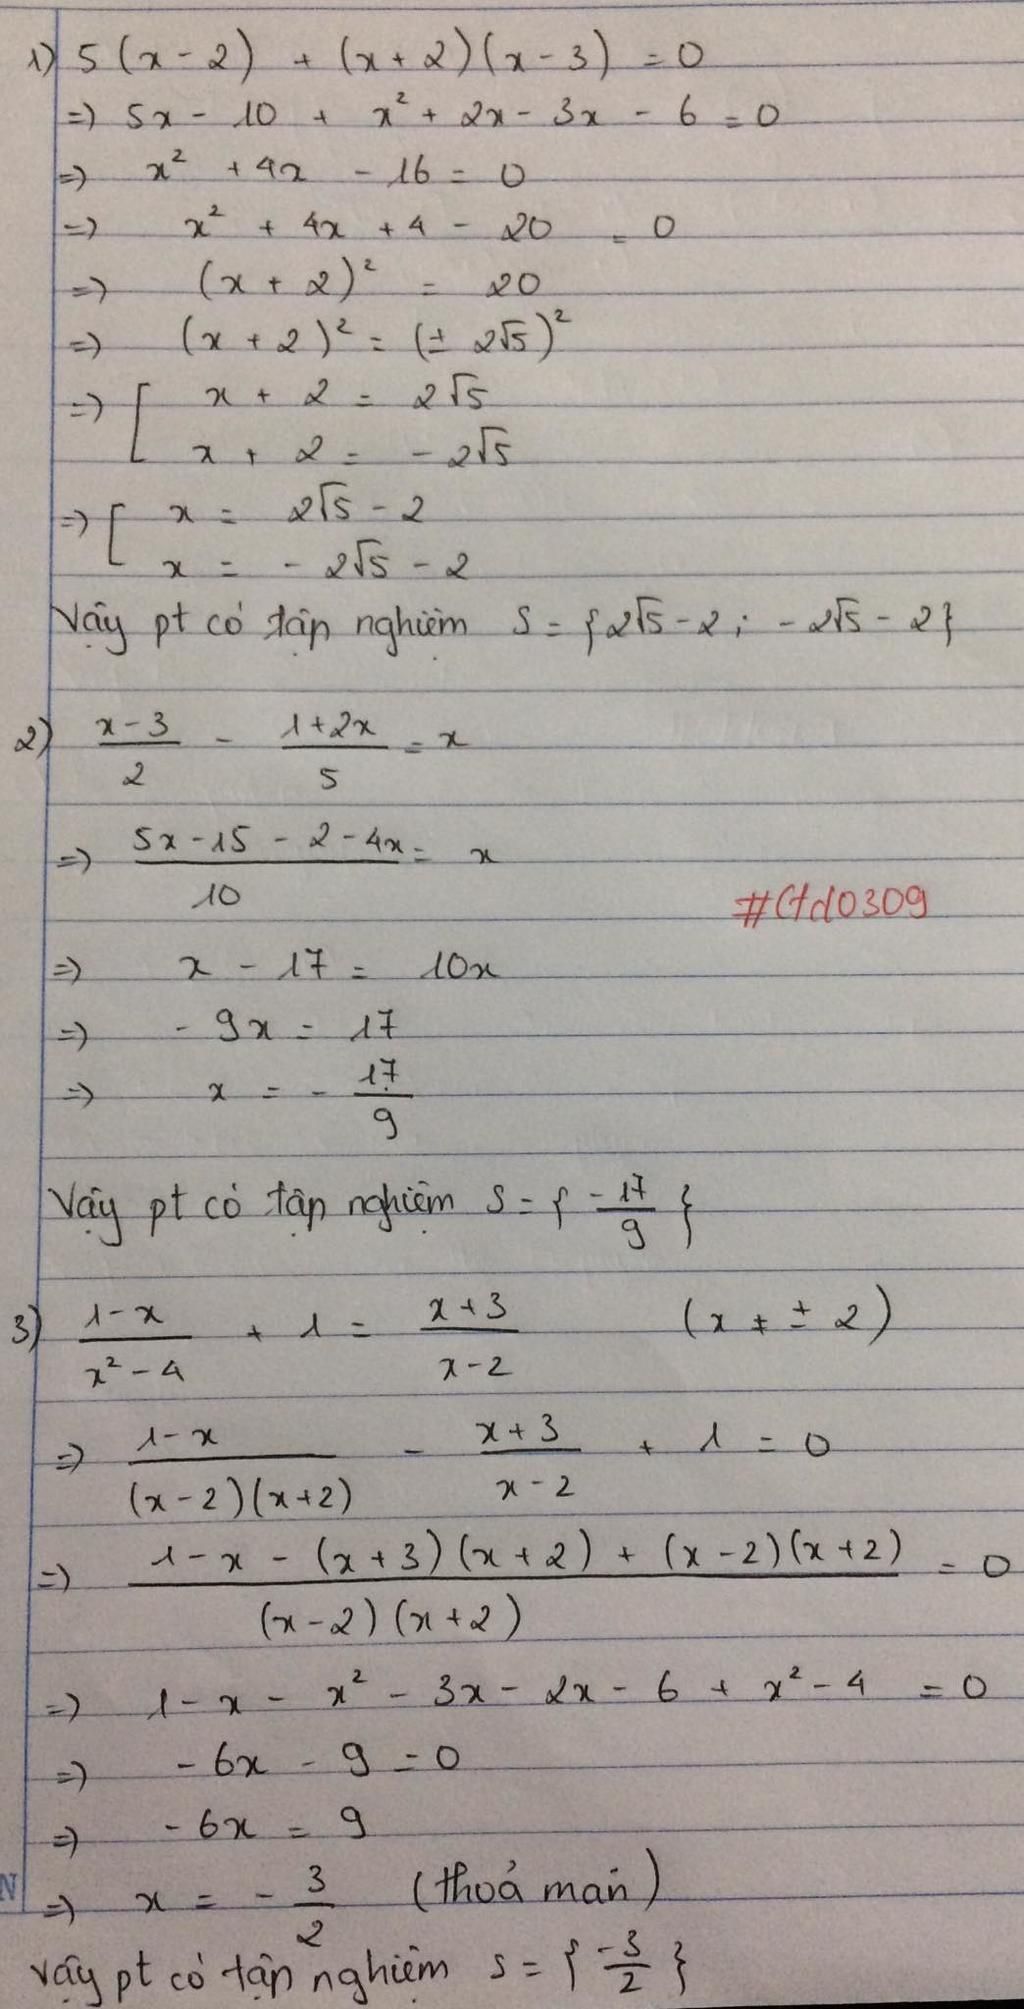 1) 5(x-2) + (x+2)(x-3) = 0
=> 5x - 10 + x² + 2x - 3x - 6 = 0
=> x² + 4x - 16 = 0
=> x² + 4x + 4 - 20 = 0
=> (x+2)² = 20
=> (x+2)² = (± 2√5)²
=> [ x + 2 = 2√5
x + 2 = -2√5
=> [ x = 2√5 - 2
x = -2√5 - 2
Vậy pt có tập nghiệm S = {2√5-2; -2√5-2}
2) (x-3)/2 - (1+2x)/5 = x
=> (5x-15-2-4x)/10 = x
#Ctd0309
=> x - 17 = 10x
=> -9x = 17
=> x = -17/9
Vậy pt có tập nghiệm S = {-17/9}
3) (1-x)/(x²-4) + 1 = (x+3)/(x-2) (x ≠ ±2)
=> (1-x)/((x-2)(x+2)) - (x+3)/(x-2) + 1 = 0
=> (1-x-(x+3)(x+2)+(x-2)(x+2))/((x-2)(x+2)) = 0
=> 1-x-x²-3x-2x-6+x²-4 = 0
=> -6x - 9 = 0
=> -6x = 9
N
=> x = -3/2 (thoả mãn)
Vậy pt có tập nghiệm S = {-3/2}